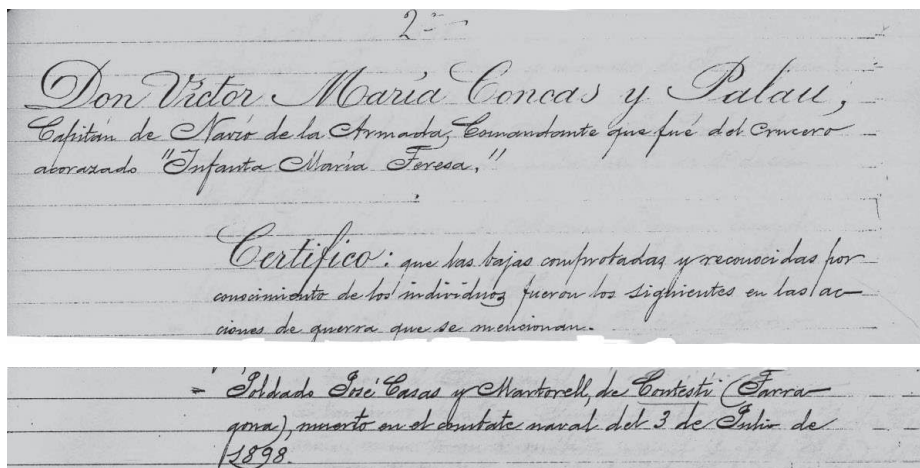 2ª
Don Victor María Concas y Palau,
Capitán de Navío de la Armada, Comandante que fué del Crucero
acorazado "Infanta María Teresa."
Certifico: que las bajas comprobadas y reconocidas por
conocimiento de los individuos fueron los siguientes en las ac-
ciones de guerra que se mencionan.
- Soldado José Casas y Martorell, de Contestí (Tarra-
gona), muerto en el combate naval del 3 de Julio de
1898.